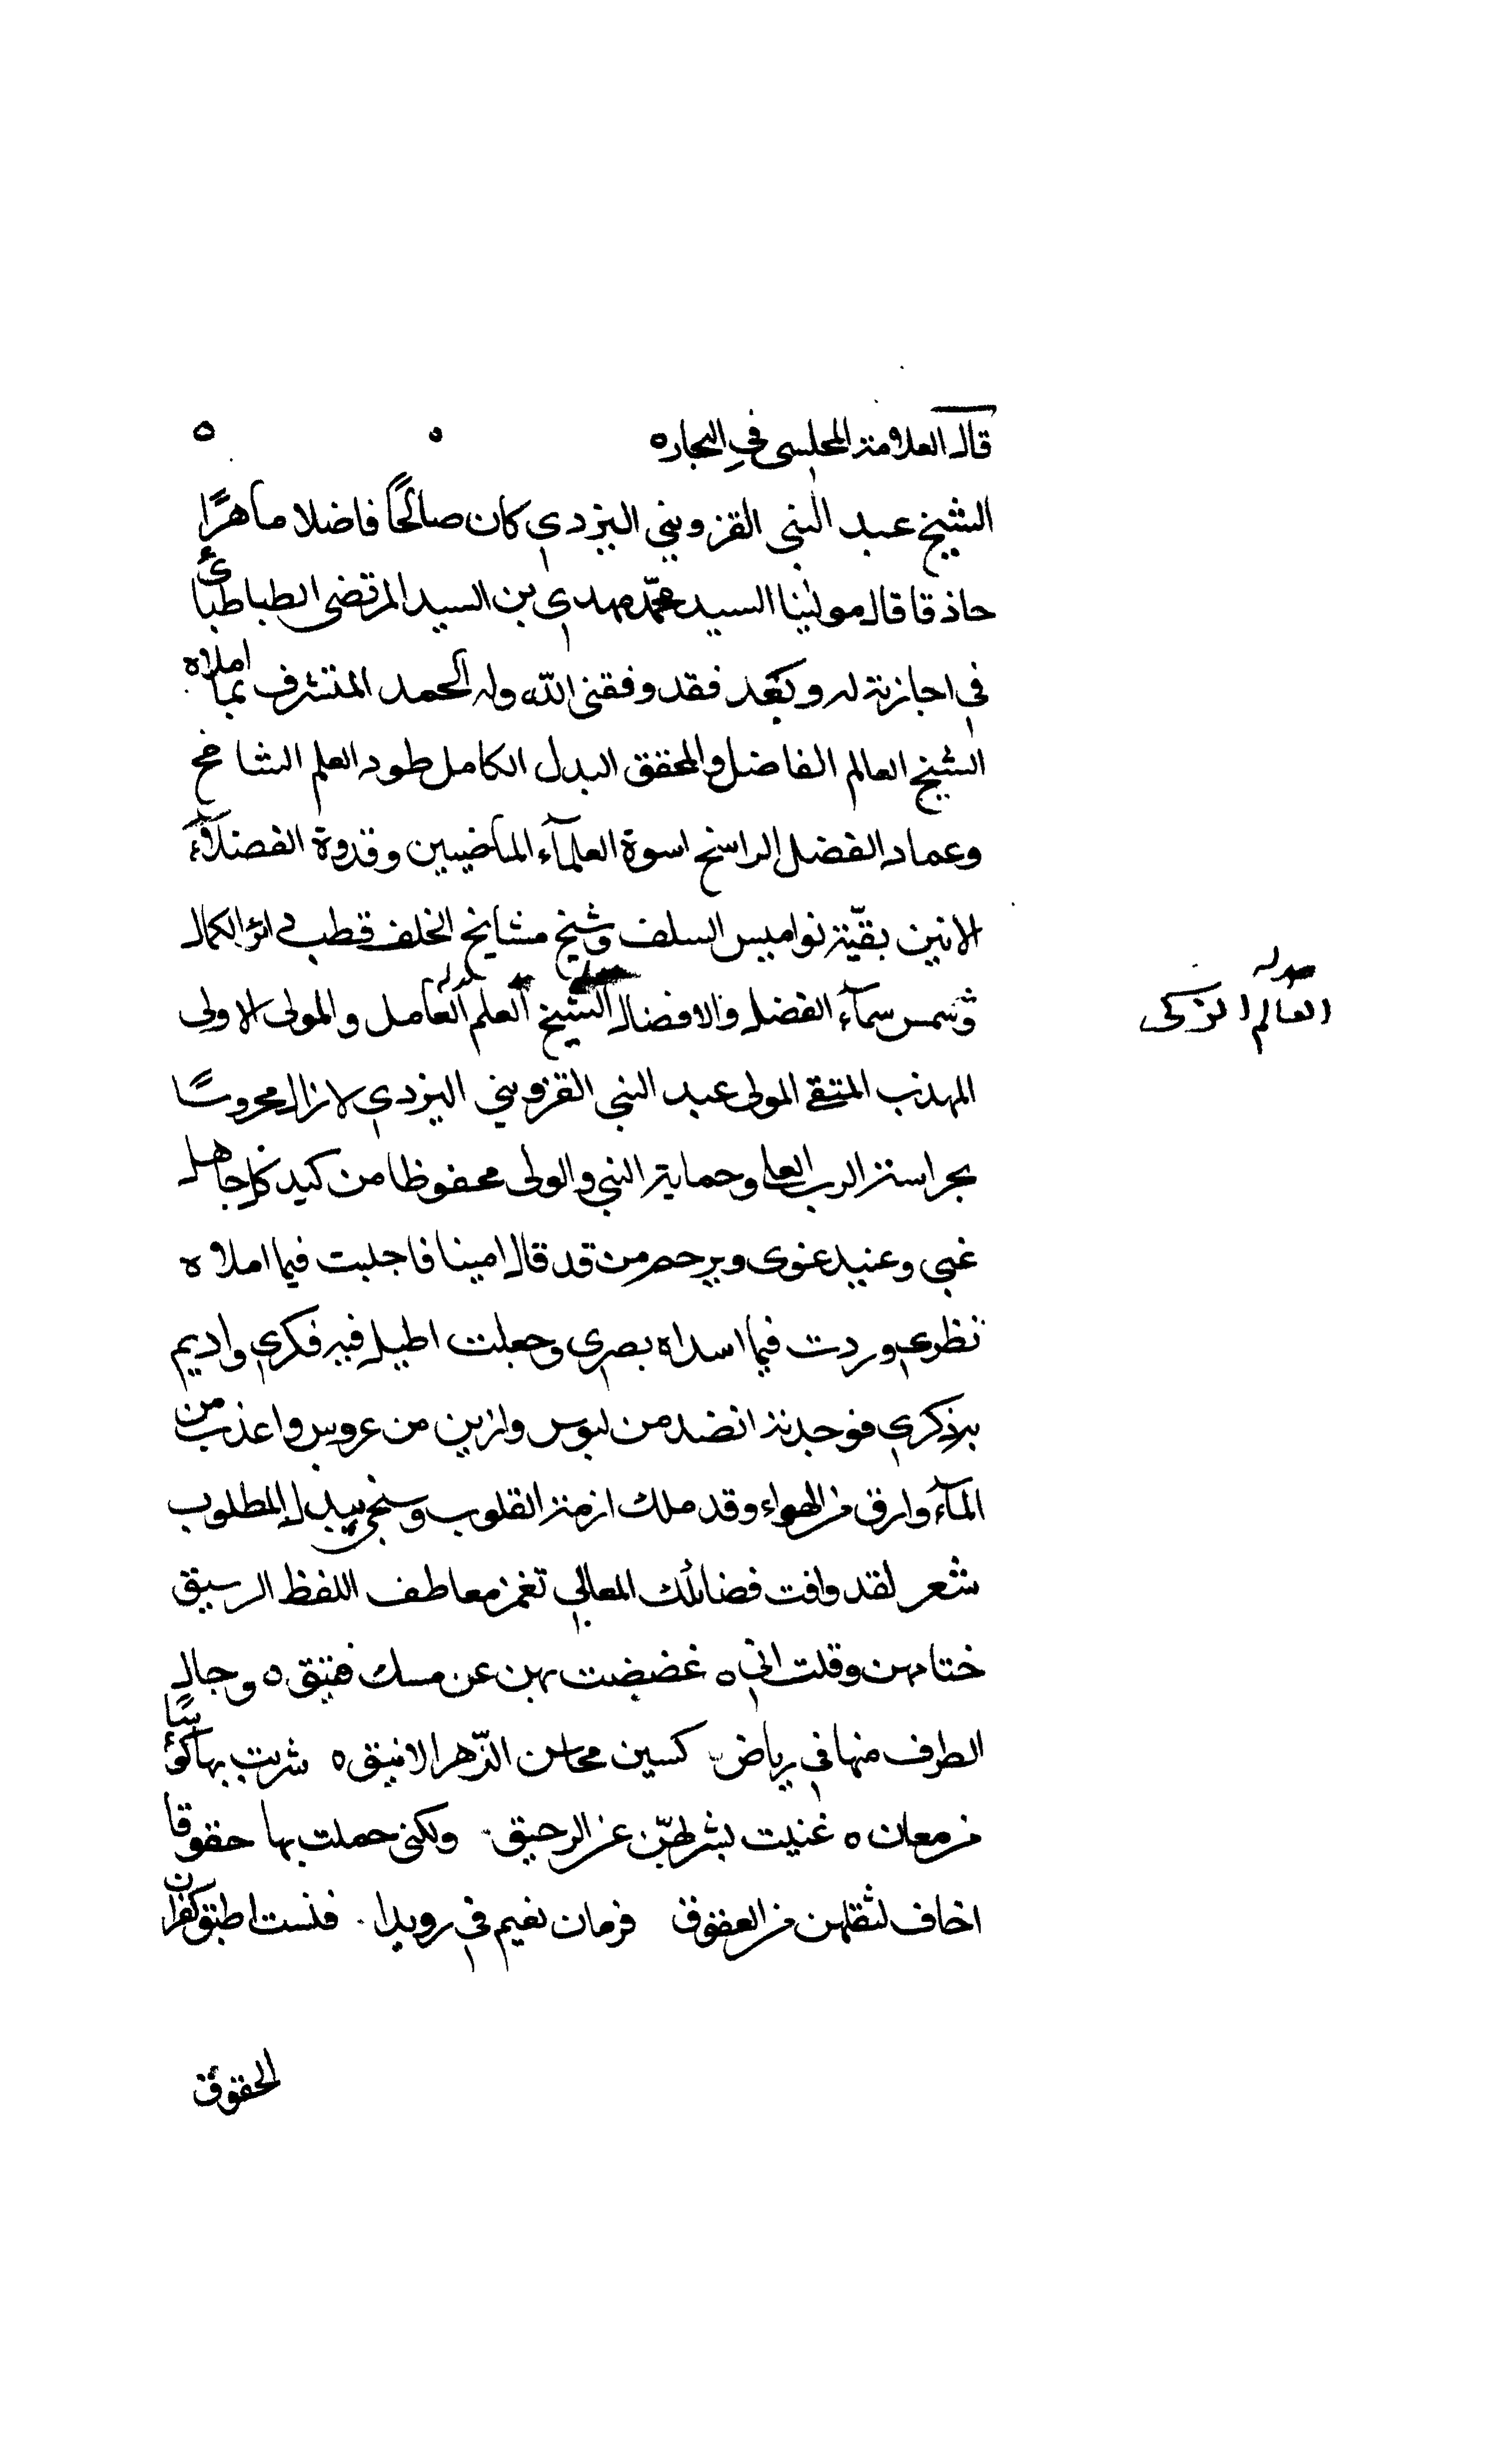 قال العلامة المجلسى فى البحاره
الشيخ عبد النبى القزوينى اليزدى كان صالحًا فاضلا ماهرًا
حاذقا قال مولينا السيد محمّد مهدى بن السيد المرتضى الطباطبائى
فى اجازته له وبَعْد فقد وفقنى الله وله الحمد المتشرف بما املاه
الشيخ العالم الفاضل والمحقق البدل الكامل طود العلم الشامخ
وعماد الفضل الراسخ اسوة العلمآء الماضيين وقدوة الفضلآء
الاتين بقيّة نواميس السلف وشيخ مشايخ الخلف قطب دائرة الكمال
وشمس سمآء الفضل والافضال الشيخ العلم العامل والمولى الاولى
العالم الزكى
المهذب المتقى المولى عبد النبى القزوينى اليزدى لا زال محروسًا
بحراسة الرب العلى وحماية النبى والولى محفوظا من كيد كل جاهل
غبى وعنيد غوى ويرحم من قد قال امينا فاجلبت فيما املاه
نظرى وردت فيما اسداه بصرى وجعلت اطيل فيه فكرى واديم
بذكرى فوجدته انضد من لبوس وازين من عروس واعذب من
المآء وارق من الهواء وقد ملك ازمة القلوب وسخى ببذل المطلوب
شعر لقد وافت فضائلك المعالى تغمز معاطف اللفظ الرسيق
ختامهن وقلت انى ه غضضت بهن عن مسك فتيق ه وجال
الطرف منها فى رياض كسين محاسن الزّهر الانيق ه شربت بها كؤسًا
من معان ه غنيت بشربهنّ عن الرحيق ولكنى حملت بها حقوقا
اخاف لثقلهن من العقوق فرمان نعيم فى رويدا فلست اطيق كفران
الحقوق